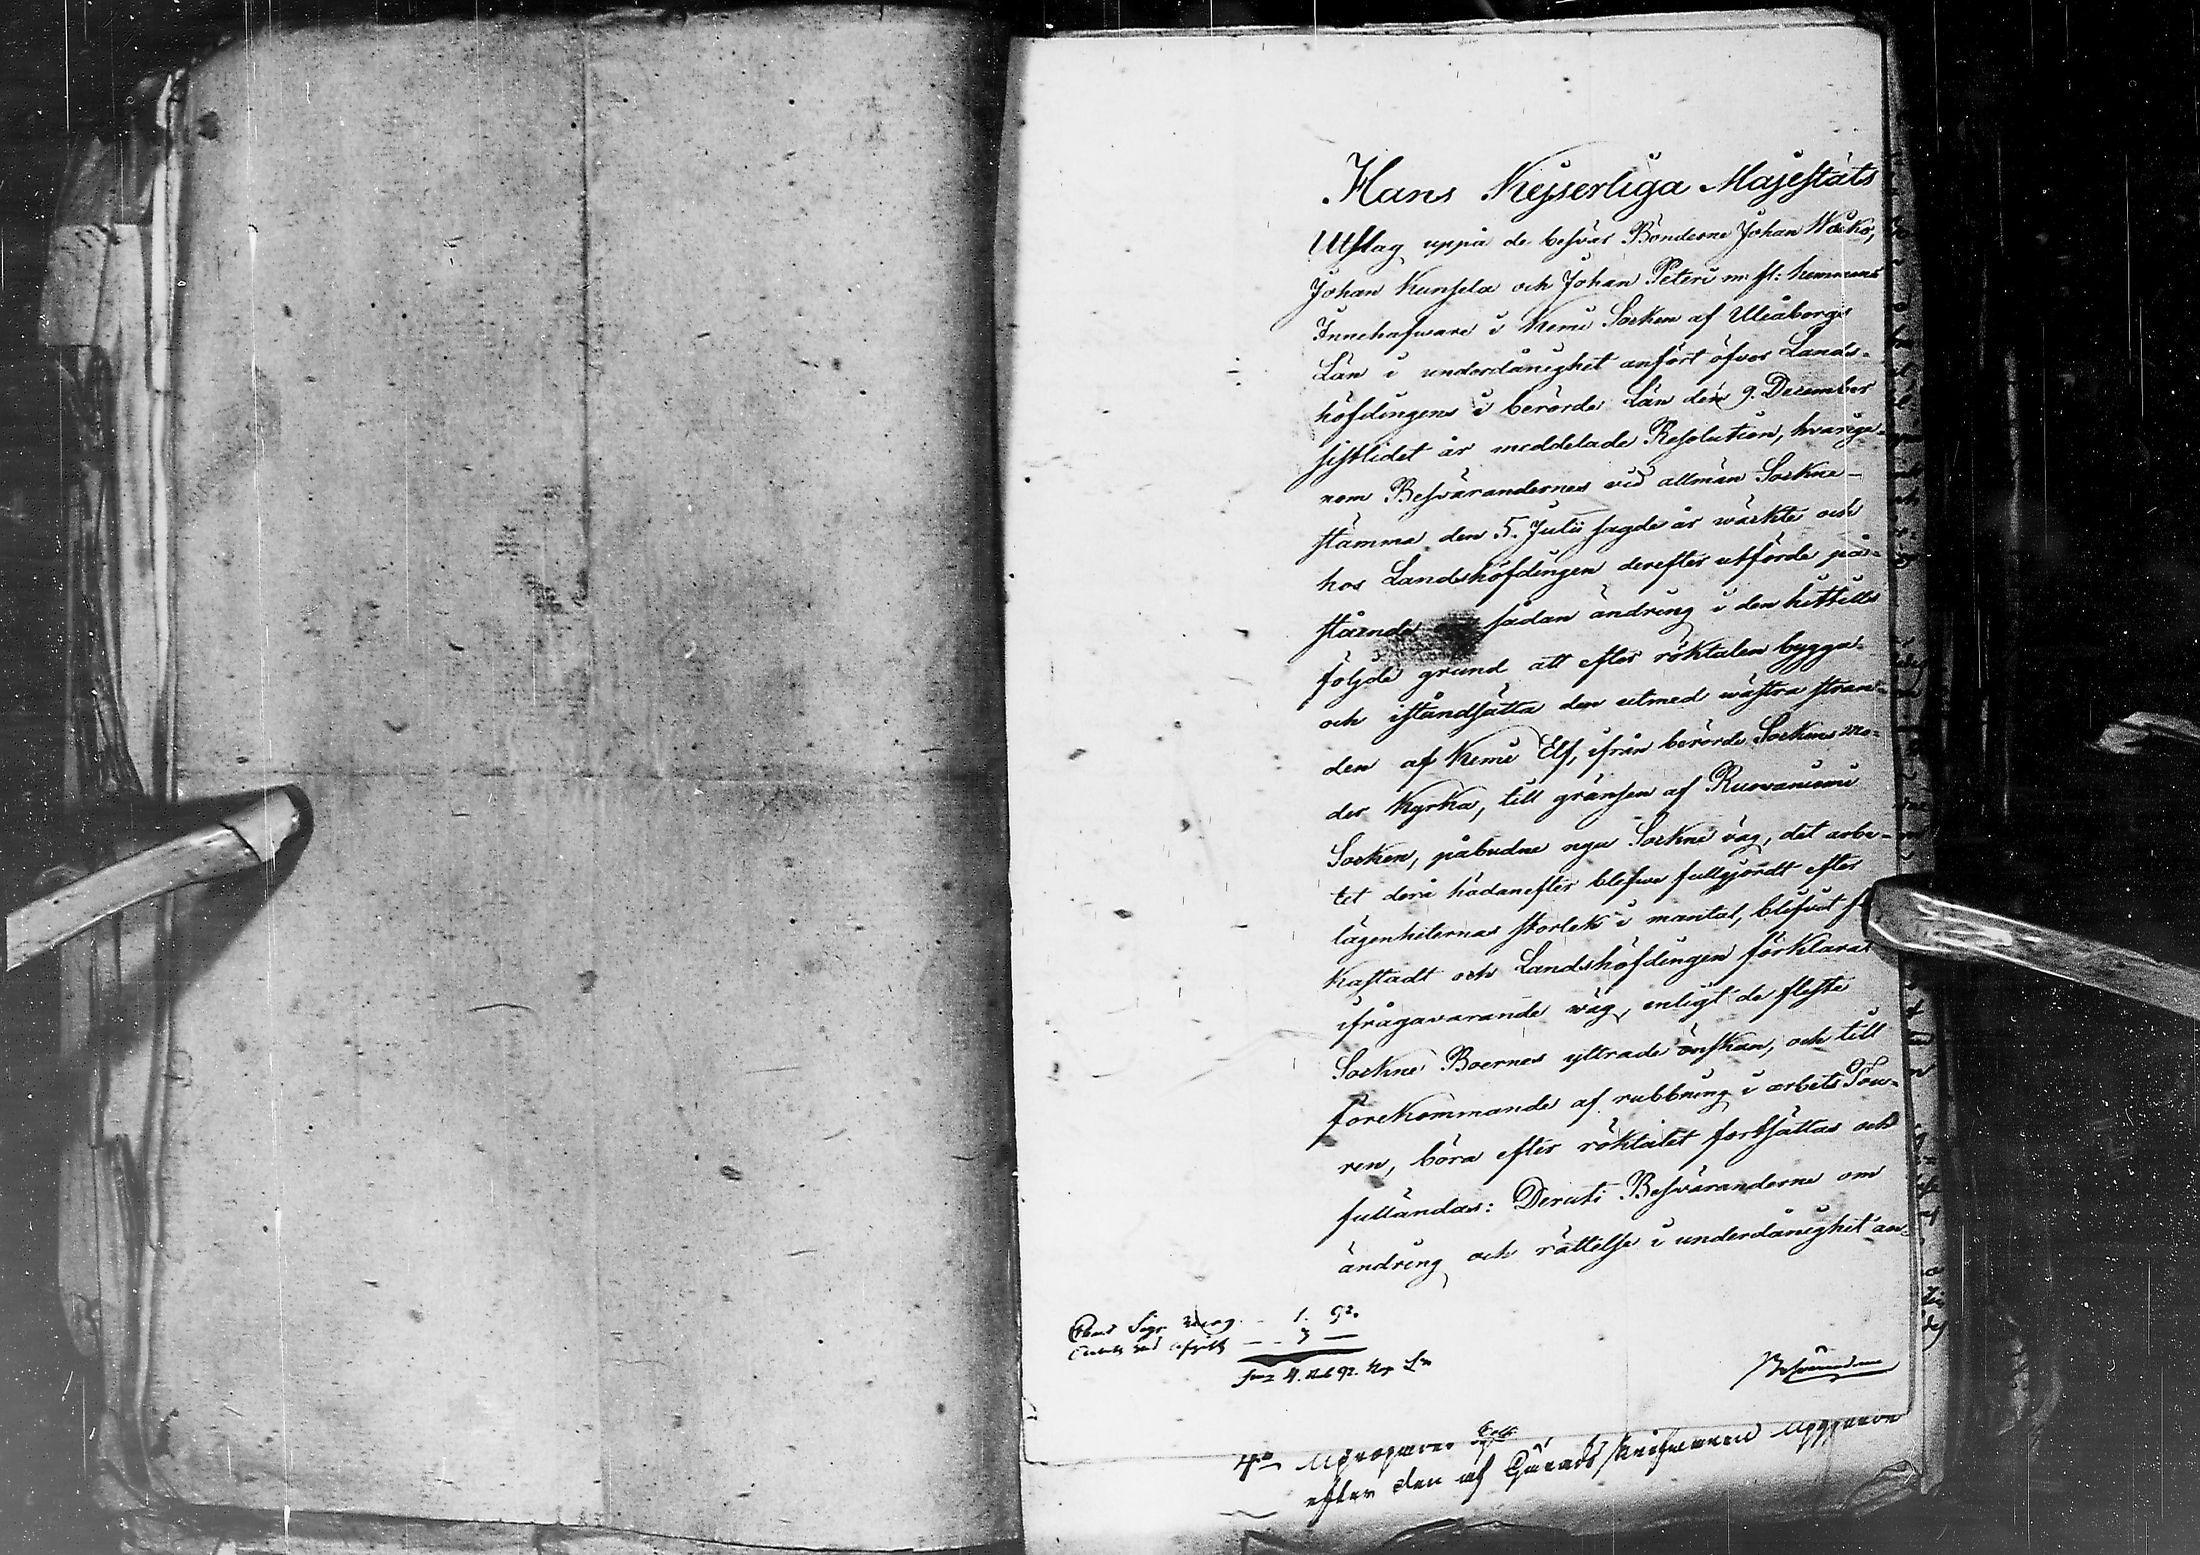 Hans Kejserliga Majestäts
Utslag uppå de besvär Bönderne Johan Wacko,
Johan Kunsila och Johan Peteri m. fl: hemmans
Innehafware i Kemi Socken af Uleåborgs
Län i underdånighet anfört öfver Lands-
höfdingens i berörde Län den 9. December
sistlidet år meddelade Resolution, hvarige-
nom Besvärandernes vid allmän Sockne-
stämma den 5. Julii sagde år wäckte och
hos Landshöfdingen derefter utförde på-
stående sådan ändring i den hittills
följde grund att efter röktalen bygga
och iståndsätta den utmed wästra stran-
den af Kemi Elf, ifrån berörde Sockens mo-
der Kyrka, till gränsen af Ruovaniemi
Socken, påbudne nya Sockne väg, det arbe-
tet deri hädanefter blefve fullgjordt efter
lägenheternas storlek i mantal, blifvit
kastadt och Landshöfdingen förklarat
ifrågavarande väg, enligt de fleste
Sockne Boernes yttrade önskan, och till
förekommande af rubbning i arbets Tou-
ren, böra efter röktalet fortsättas och
fulländas: Deruti Besväranderne om
ändring och rättelse i underdånighet an-
1. 92.
3 —
4. 92.
Besväranderne
4:o
efter den af Härads Skrifvaren uppgifne